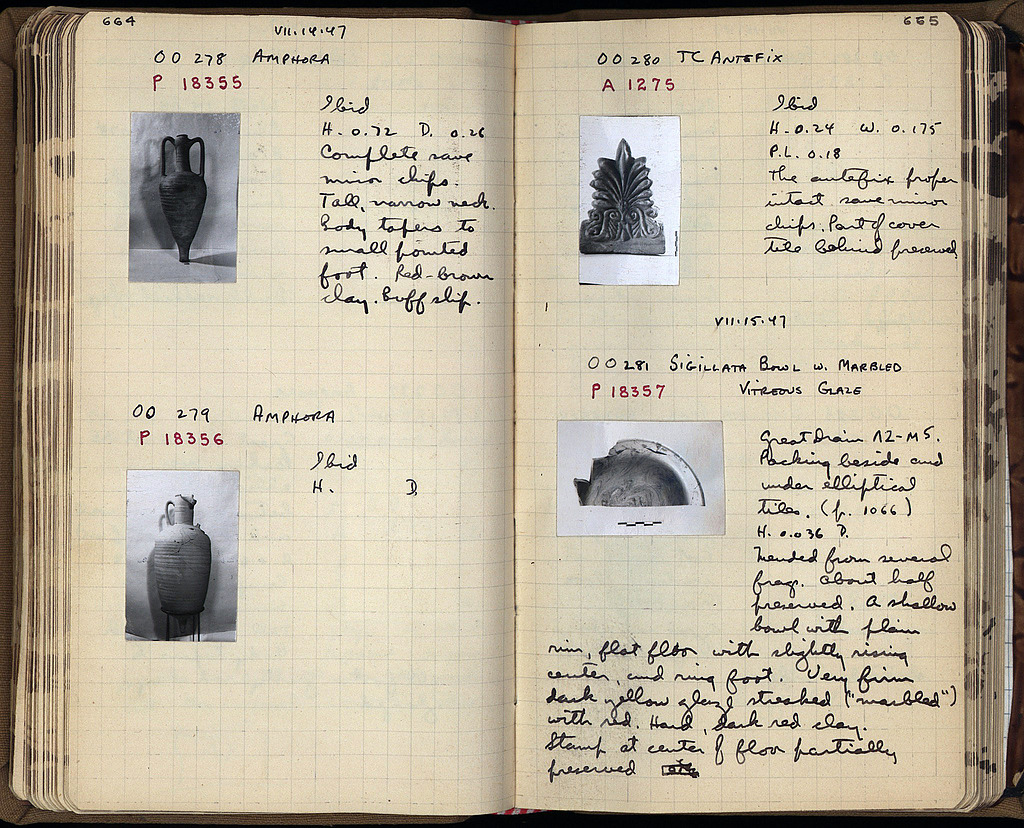 664
VII.14.47
OO 278 AMPHORA
P 18355
Ibid
H. 0.72 D. 0.26
Complete save
minor chips.
Tall, narrow neck.
Body tapers to
small pointed
foot. Red-brown
clay. Buff slip.
OO 279 AMPHORA
P 18356
Ibid
H. D.
665
OO 280 TC ANTEFIX
A 1275
Ibid
H. 0.24 W. 0.175
P.L. 0.18
The antefix proper
intact save minor
chips. Part of cover
tile behind preserved
VII.15.47
OO 281 SIGILLATA BOWL W. MARBLED
P 18357 VITREOUS GLAZE
Great Drain 12-M5.
Packing beside and
under elliptical
tiles. (p. 1066)
H. 0.036 D.
Mended from several
frags. About half
preserved. A shallow
bowl with plain
rim, flat floor with slightly rising
center, and ring foot. Very firm
dark yellow glaze streaked ("marbled")
with red. Hard, dark red clay.
Stamp at center of floor partially
preserved